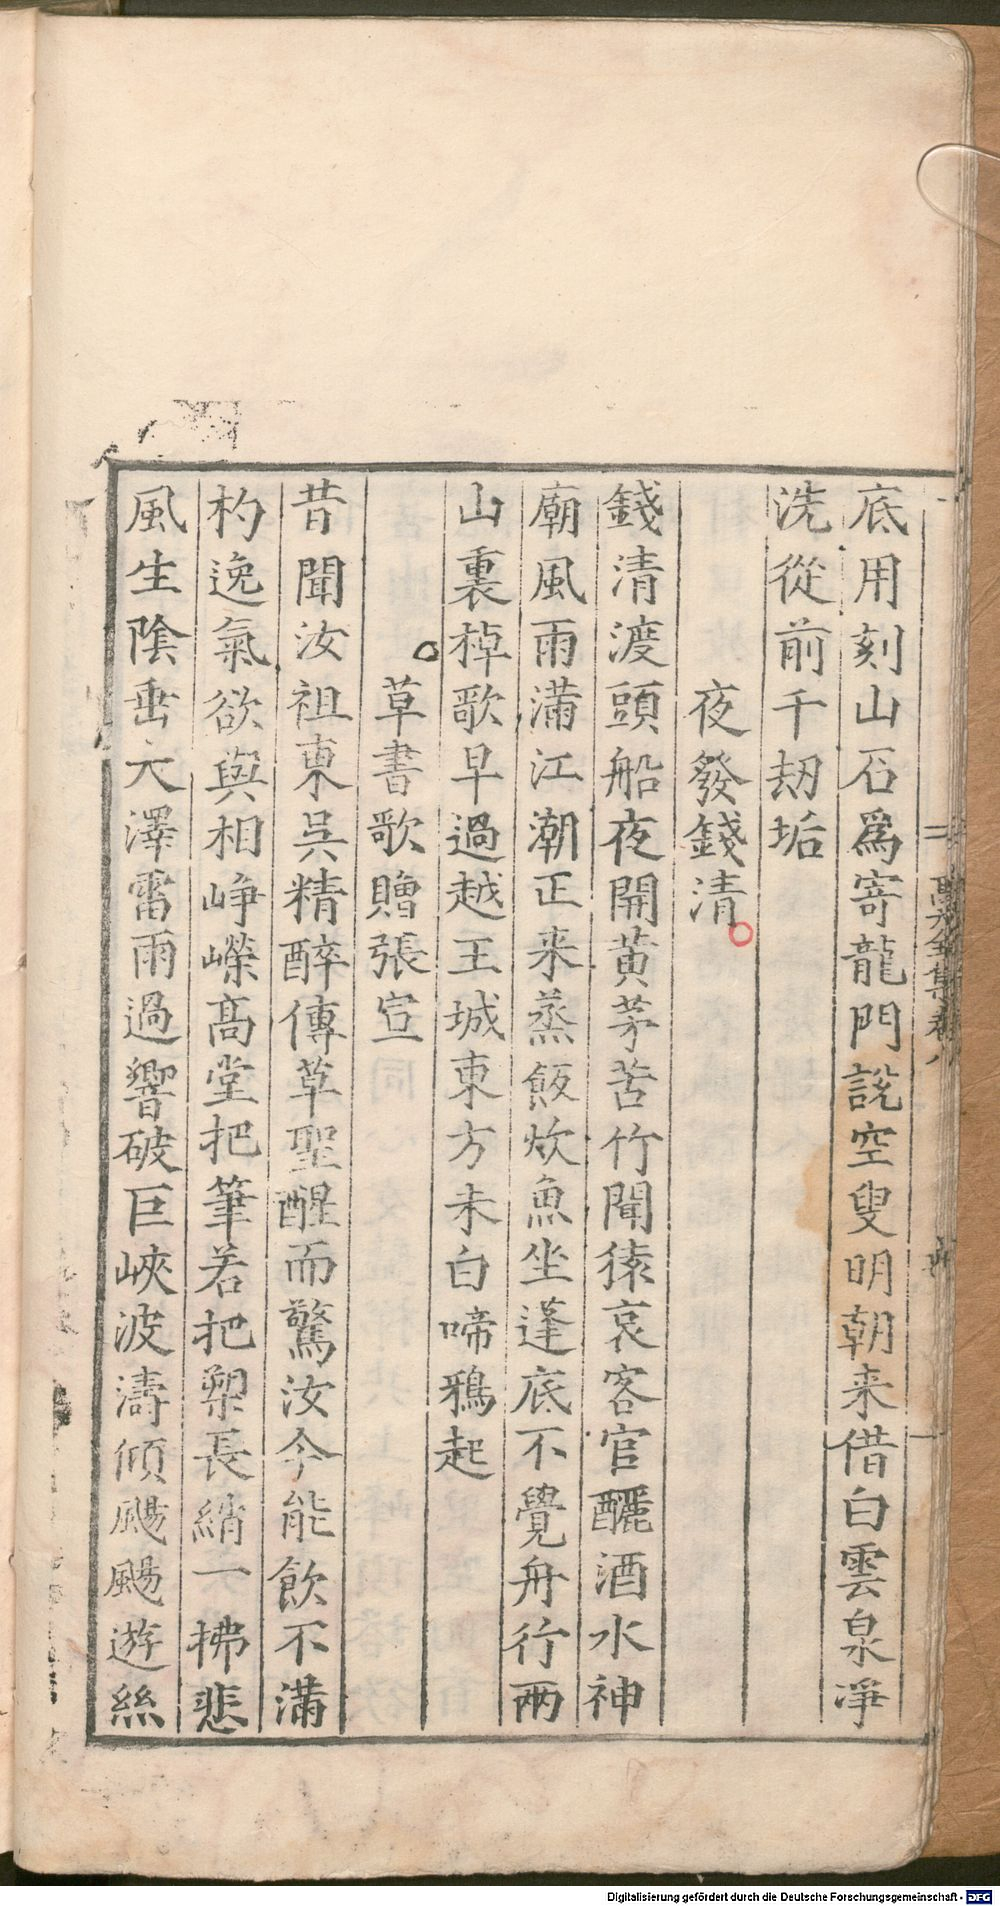 底用刻山石爲寄龍門說空叟明朝来借白雲泉淨
洗從前千刼垢
夜發錢清
錢清渡頭船夜開黃茅苦竹聞猿哀客官釃酒水神
廟風雨滿江潮正来蒸飯炊魚坐蓬底不覺舟行兩
山裏棹歌早過越王城東方未白啼鴉起
草書歌贈張宣
昔聞汝祖東吳精醉傳草聖醒而驚汝今能飲不滿
杓逸氣欲與相崢嶸高堂把筆若把槊長綃一拂悲
風生陰垂大澤雷雨過響破巨峽波濤傾颺颺遊絲
Digitalisierung gefördert durch die Deutsche Forschungsgemeinschaft - DFG